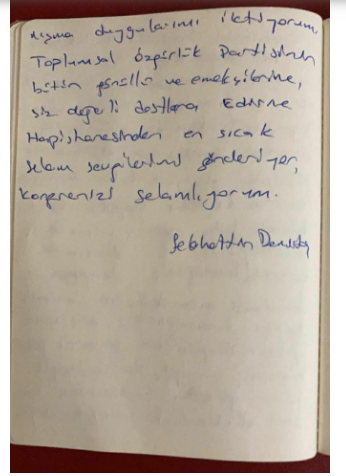 duygularımı iletiyorum
Toplumsal Özgürlük Partisinin
bütün gönüllü ve emekçilerine,
siz değerli dostlara Edirne
Hapishanesinden en sıcak
selam sevgilerimi gönderiyor,
konferansı selamlıyorum.
Selahattin Demirtaş